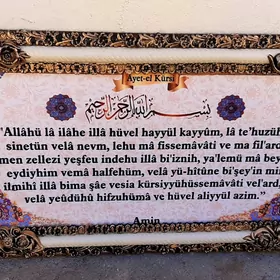 Ayet-el Kürsi
بسم الله الرحمن الرحيم
"Allâhü lâ ilâhe illâ hüvel hayyül kayyûm, lâ te'huzüh
sinetün velâ nevm, lehu mâ fissemâvâti ve ma fil'ard
men zellezi yeşfeu indehu illâ bi'iznih, ya'lemû mâ bey
eydiyhim vemâ halfehüm, velâ yü-hîtûne bi'şey'in min
ilmihî illâ bima şâe vesia kürsiyyühüssemâvâti vel'ard,
velâ yeûdühû hıfzuhümâ ve hüvel aliyyül azim."
Amin